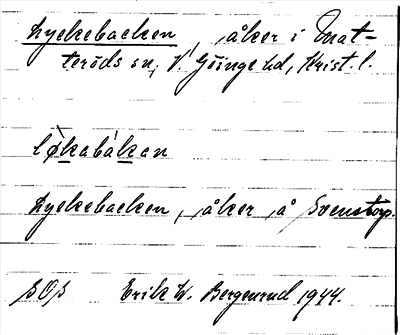 Lyckebacken, åker i Mat-
teröds sn, V. Göinge hd, Krist. l.
lø̀kabákan
Lyckebacken, åker å Svenstorp.
SOS Erik W. Bergenrud 1944.